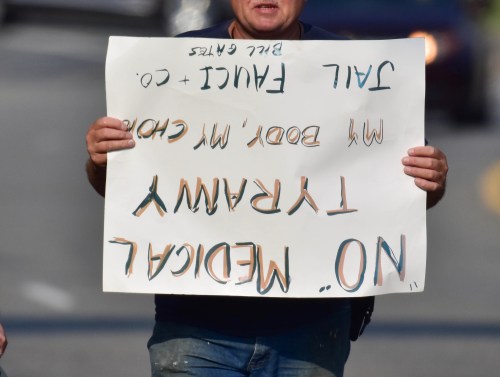 "NO" MEDICAL
TYRANNY
MY BODY, MY CHOI
JAIL FAUCI + CO.
BILL GATES